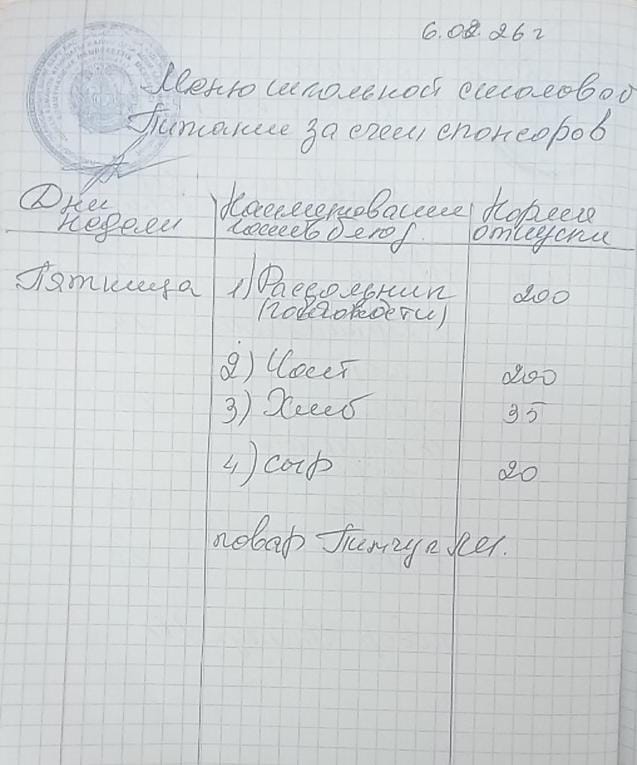 6.02.26г
Меню школьной столовой
Питание за счет спонсоров
Дни недели
Наименование блюд
Норма отпуска
Пятница
1) Рассольник
200
(говядости)
2) Чай
200
3) Хлеб
35
4) сыр
20
повар Пинчук